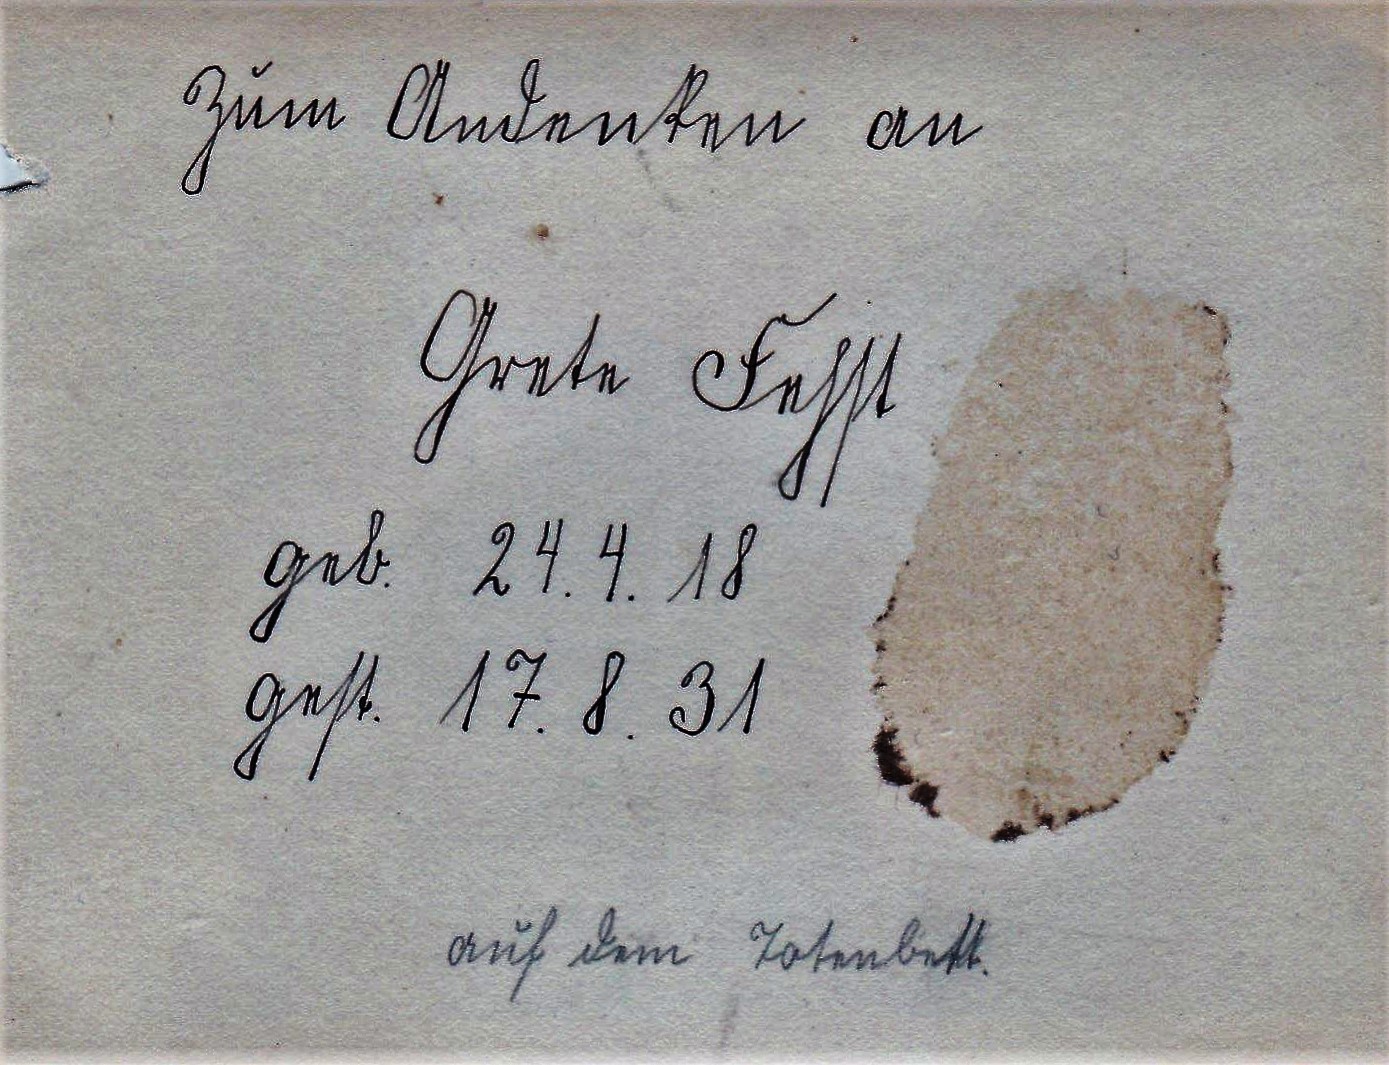 Zum Andenken an
Grete Fehst
geb. 24. 4. 18
gest. 17. 8. 31
auf dem Totenbett.